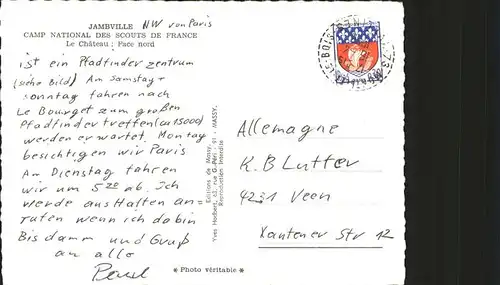 JAMBVILLE NW von Paris
CAMP NATIONAL DES SCOUTS DE FRANCE
Le Château ; Face nord
ist ein Pfadfinderzentrum
(siehe Bild) Am Samstag +
sonntag fahren nach
Le Bourget zum großen
Pfadfindertreffen (ca 15000)
werden erwartet. Montag
besichtigen wir Paris
Am Dienstag fahren
wir um 5 20 ab. Ich
werde aus Halten an-
rufen wenn ich da bin
Bis dann und Gruß
an alle
Paul
Editions de Massy
Reproduction interdite
* Photo véritable *
Allemagne
K. B Lutter
4231 Veen
Xantener Str 12